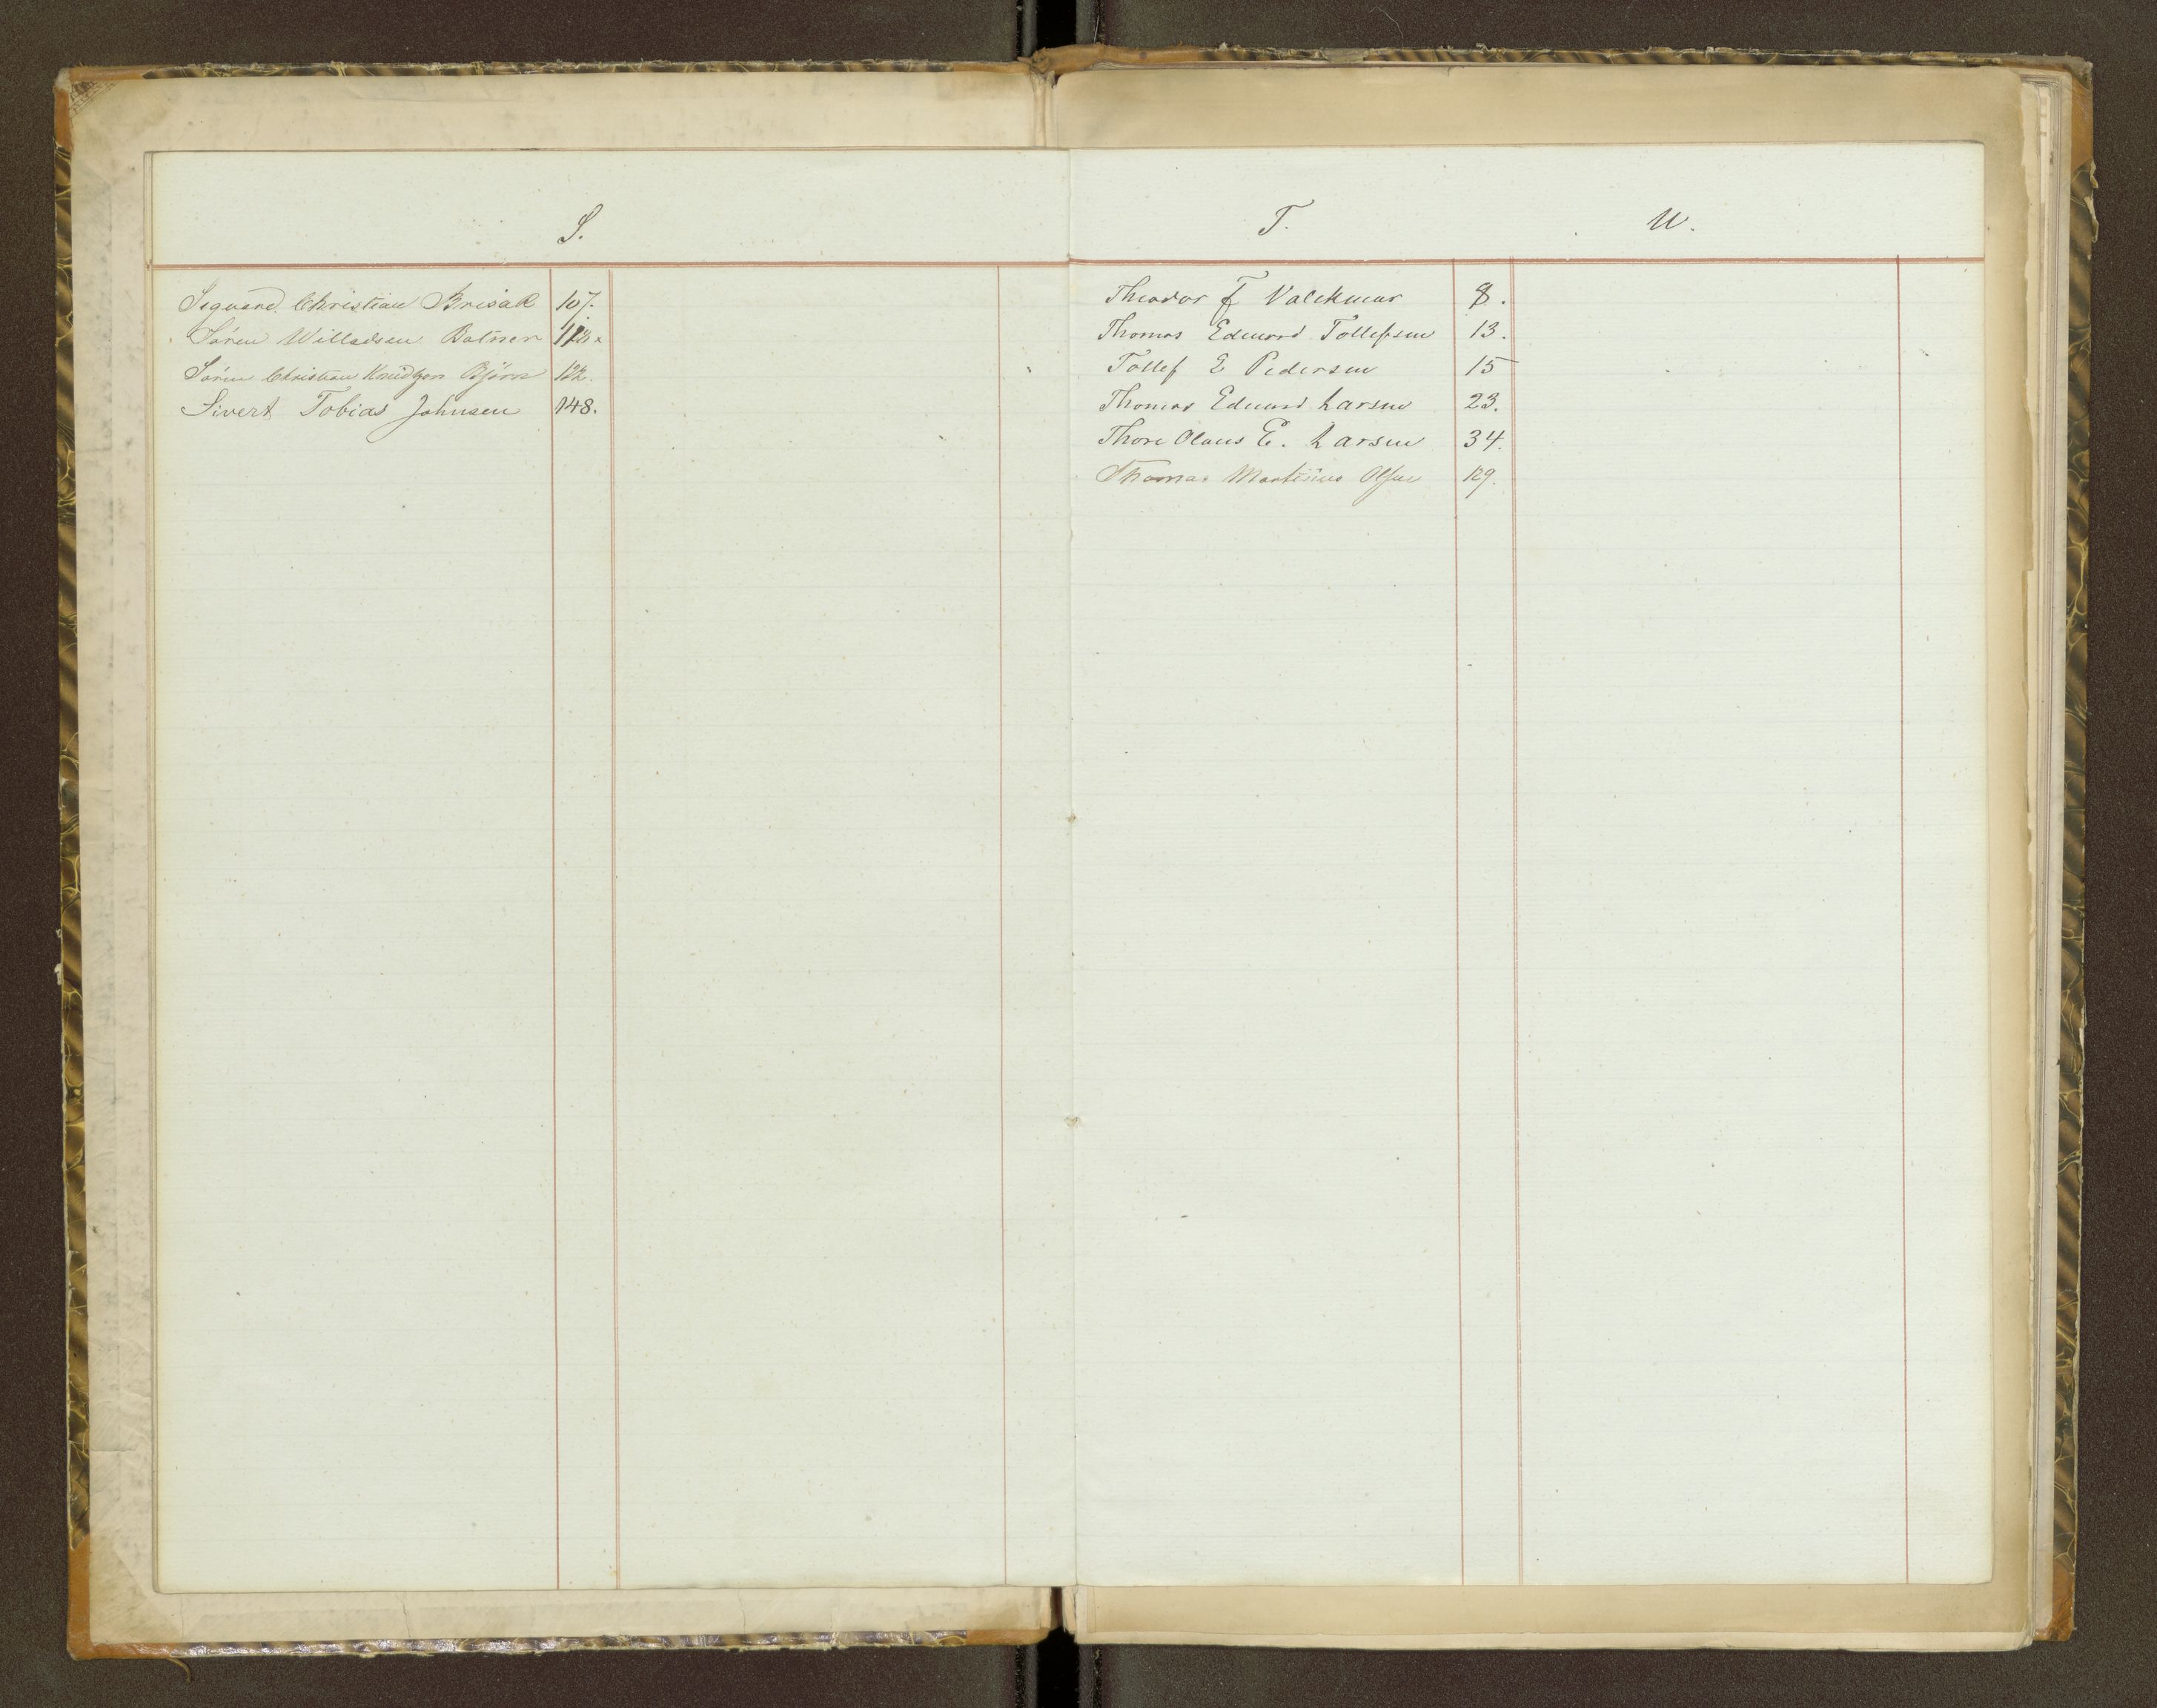 S.
Sigvard Christian Brisak 107.
Sören Willadsen Batner
Sören Christian Knudtzon Björn 122.
Sivert Tobias Johnsen 148.
T.
Theodor F Valckmar 8.
Thomas Edward Tollefsen 13.
Tollef E Pedersen 15
Thomas Edward Larsen 23.
Thore Olaus E. Larsen 34.
Thomas Martinius Olsen 129.
U.